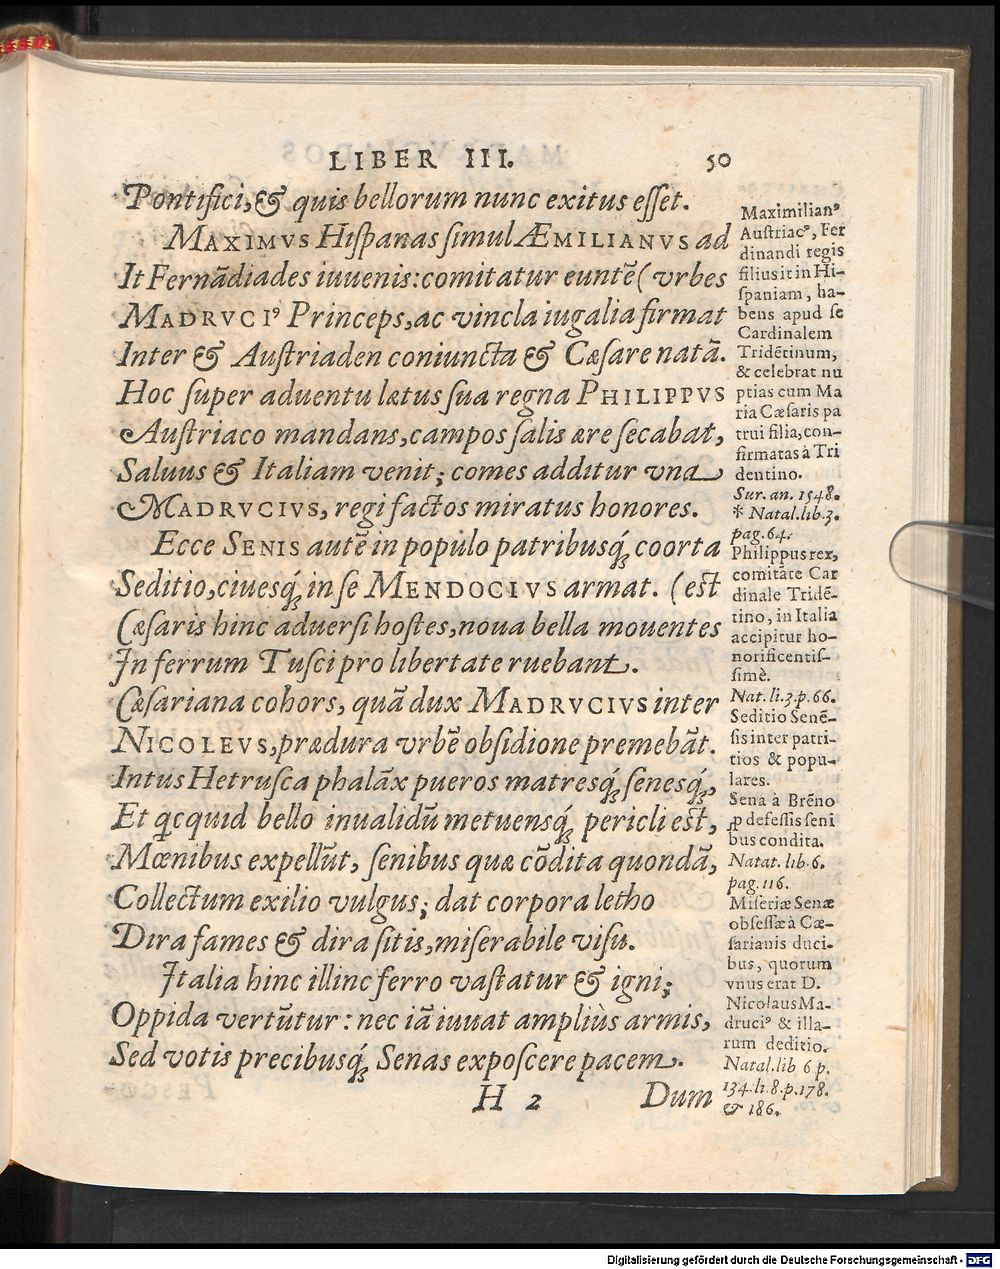 LIBER III. 50
Pontifici, & quis bellorum nunc exitus esset.
MAXIMVS Hispanas simul ÆMILIANVS ad
It Fernãdiades iuuenis: comitatur euntẽ (vrbes
MADRVCIꝰ Princeps, ac vincla iugalia firmat
Inter & Austriaden coniuncta & Cæsare natã.
Hoc super aduentu lætus sua regna PHILIPPVS
Austriaco mandans, campos salis ære secabat,
Saluus & Italiam venit; comes additur vna
MADRVCIVS, regi factos miratus honores.
Ecce SENIS autẽ in populo patribusq́; coorta
Seditio, ciuesq́; in se MENDOCIVS armat. (est
Cæsaris hinc aduersi hostes, noua bella mouentes
In ferrum Tusci pro libertate ruebant.
Cæsariana cohors, quã dux MADRVCIVS inter
NICOLEVS, prædura vrbẽ obsidione premebãt.
Intus Hetrusca phalãx pueros matresq́; senesq́;,
Et qcquid bello inualidũ metuensq́; pericli est,
Mœnibus expellũt, senibus quæ cõdita quondã,
Collectum exilio vulgus; dat corpora letho
Dira fames & dira sitis, miserabile visu.
Italia hinc illinc ferro vastatur & igni;
Oppida vertũtur: nec iã iuuat ampliùs armis,
Sed votis precibusq́; Senas exposcere pacem.
H 2 Dum
Maximilianꝰ
Austriacꝰ, Fer
dinandi regis
filius it in Hi-
spaniam, ha-
bens apud se
Cardinalem
Tridẽtinum,
& celebrat nu
ptias cum Ma
ria Cæsaris pa
trui filia, con-
firmatas à Tri
dentino.
Sur. an. 1548.
* Natal. lib. 3.
pag. 64.
Philippus rex,
comitãte Car
dinale Tridẽ-
tino, in Italia
accipitur ho-
norificentis-
simè.
Nat. li. 3. p. 66.
Seditio Senẽ-
sis inter patri-
tios & popu-
lares.
Sena à Brẽno
ꝓ defessis seni
bus condita.
Natat. lib. 6.
pag. 116.
Miseriæ Senæ
obsessæ à Cæ-
sarianis duci-
bus, quorum
vnus erat D.
Nicolaus Ma-
druciꝰ & illa-
rum deditio.
Natal. lib 6 p.
134. li. 8. p. 178.
& 186.
Digitalisierung gefördert durch die Deutsche Forschungsgemeinschaft - DFG